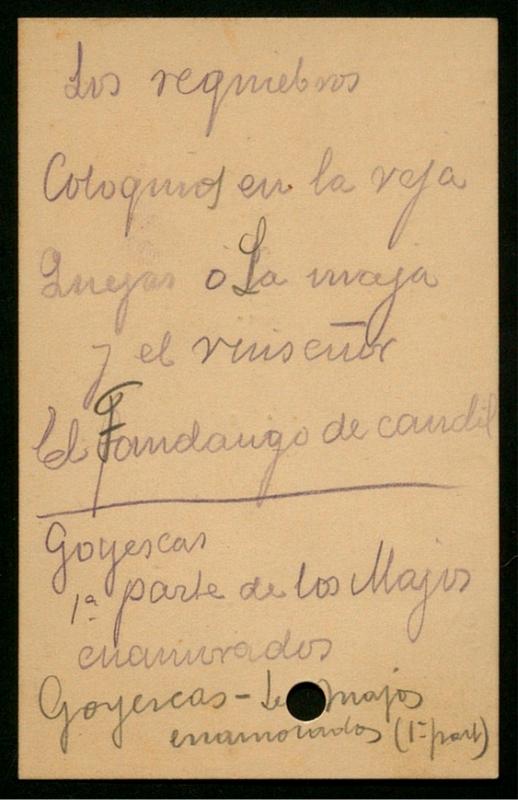 Los requiebros
Coloquios en la reja
Quejas ó La maja
y el ruiseñor
El Fandango de candil
Goyescas
1ª parte de los Majos
enamorados
Goyescas - majos
enamorados (1ª part)